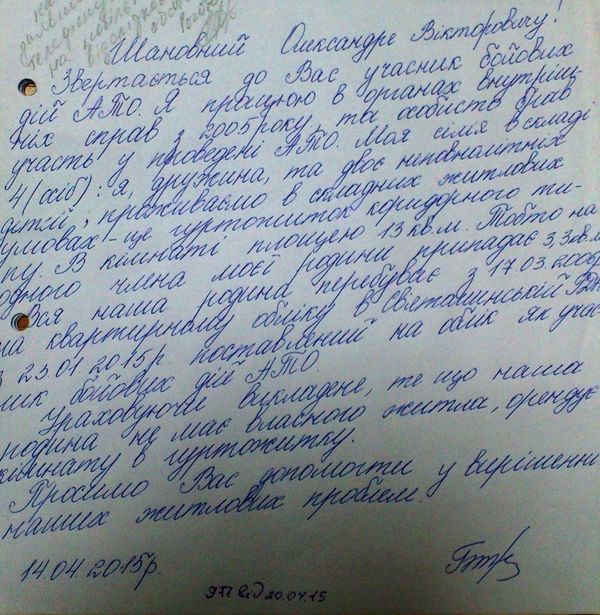 на
Шановний Олександре Вікторовичу!
Звертається до Вас учасник бойових
дій АТО. Я працюю в органах внутріш-
ніх справ з 2005 року, та особисто брав
участь у проведені АТО. Моя сімя в складі
4 (осіб): я, дружина, та двоє неповнолітніх
дітей, проживаємо в складних житлових
умовах - це гуртожиток коридорного ти-
пу. В кімнаті площею 13 кв.м. Тобто на
одного члена моєї родини припадає 3,3 кв.м
Вся наша родина перебуває з 17.03.2006р
на квартирному обліку в Святошинській РДА
з 23.01.2015р. поставлений на облік як учас-
ник бойових дій АТО.
Ураховуючи викладене, те що наша
родина не має власного житла, орендує
кімнату в гуртожитку.
Просимо Вас допомогти у вирішенні
наших житлових проблем.
14.04.2015р.
від 20.04.15